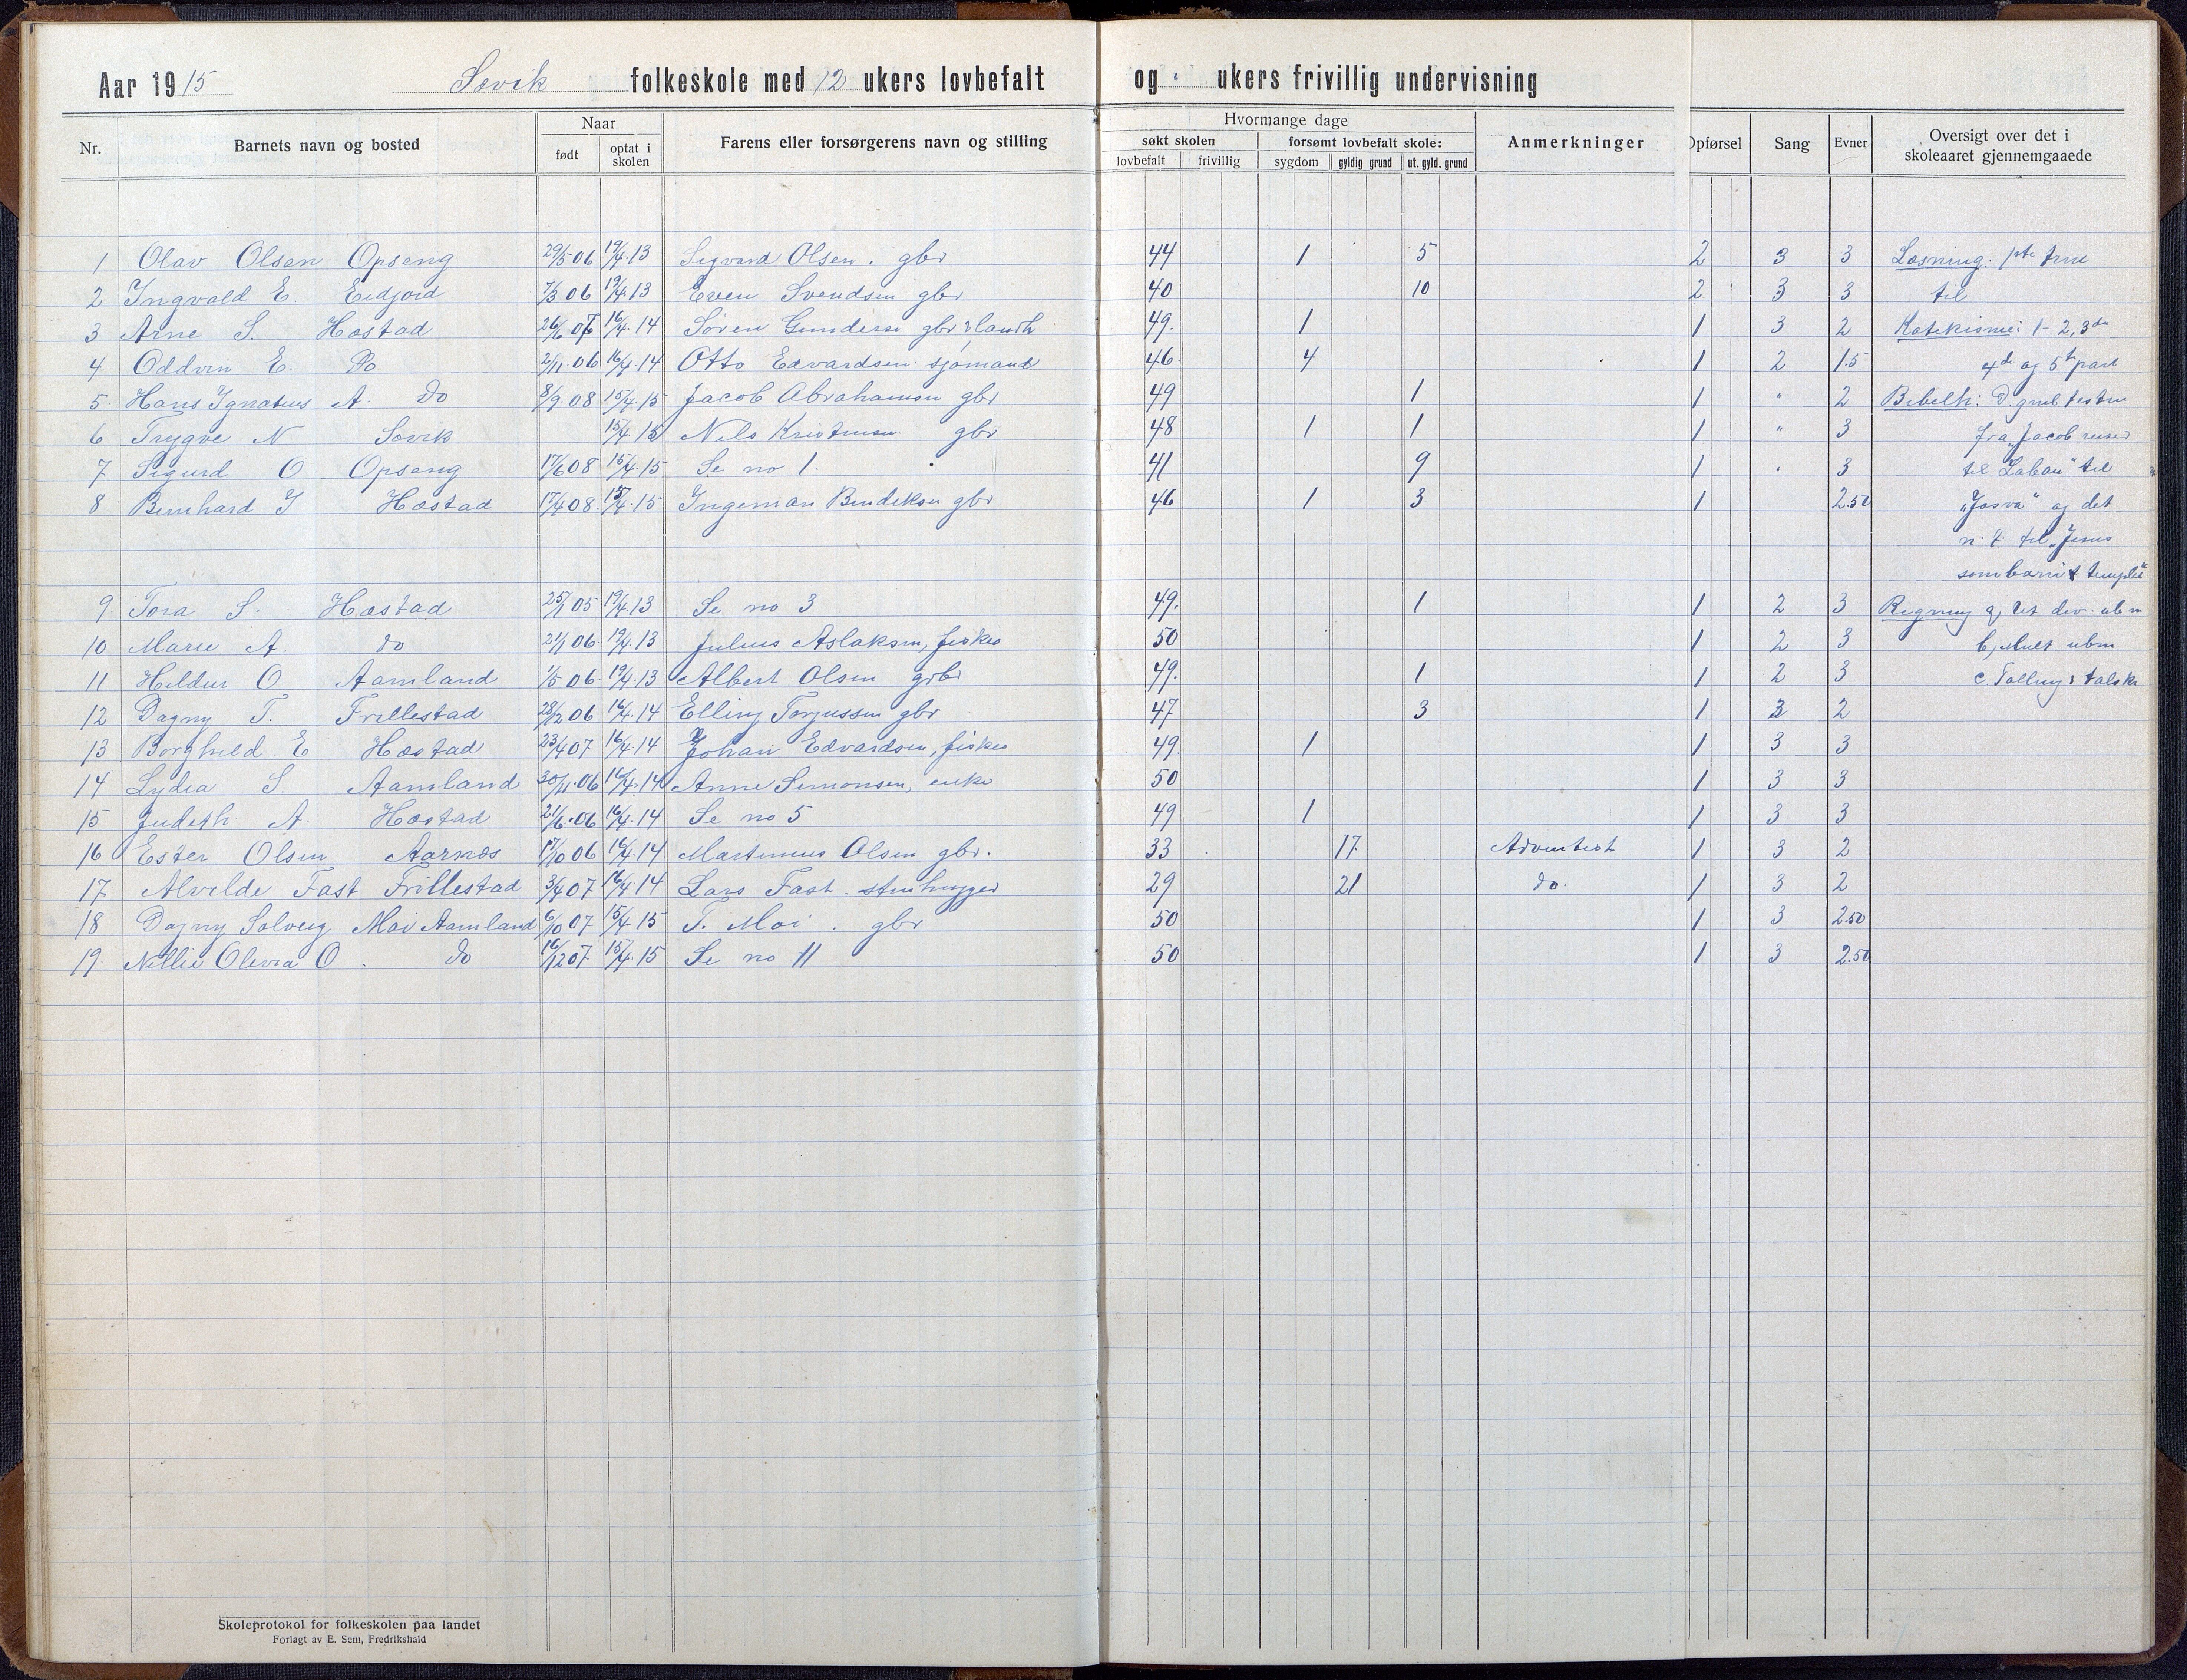 Aar 1915 Søvik folkeskole med 12 ukers lovbefalt og " ukers frivillig undervisning
Nr. Barnets navn og bosted Naar født optat i skolen Farens eller forsørgerens navn og stilling Hvormange dage søkt skolen lovbefalt frivillig forsømt lovbefalt skole: sygdom gyldig grund ut. gyld. grund Anmerkninger Opførsel Sang Evner Oversigt over det i skoleaaret gjennemgaaede
1 Olav Olsen Opseng 29/5 06 19/4.13 Sigvard Olsen. gbr 44 1 5 2 3 3 Læsning.
2 Ingvald E. Eidjord 7/3 06 19/4.13 Even Svendsen gbr 40 10 2 3 3 til
3 Arne S. Hæstad 26/6 07 16/4.14 Søren Gundersen gbr 49. 1 1 3 2 Katekisme: 1-2, 3de
4 Oddvin E. Do 2/11.06 16/4.14 Otto Edvardsen sjømand 46 4 1 2 1.5 4de og 5te part
5. Hans Ignatius A. do 8/9.08 15/4.15 Jacob Abrahamsen gbr 49 1 1 " 2 Bibelh:
6 Trygve N Søvik 15/4 15 Nils Kristensen gbr 48 1 1 1 " 3 fra "Jacob reiser
7 Sigurd O Opseng 17/6 08 15/4.15 Se no 1. 41 9 1 " 3 til Laban" til
8 Bernhard I Hæstad 17/4 08 15/4.15 Ingeman Bendiksen gbr 46 1 3 1 2.50 "Josva" og det
n. t. til "Jesus
som barn i templet"
9. Tora S. Hæstad 25/1 05 19/4.13 Se no 3 49. 1 1 2 3 Regning
10 Marie A. do 2/1 06. 19/4.13 Julius Aslaksen, fisker 50 1 2 3 b, Mult
11 Hildur O Aamland 1/5 06 19/4.13 Albert Olsen gbr 49. 1 1 2 3 c.
12 Dagny T. Frillestad 28/2 06 16/4.14 Elling Torjussen gbr 47 3 1 3 2
13 Borghild E Hæstad 23/4 07 16/4.14 Johan Edvardsen, fisker 49 1 1 3 3
14 Lydia S. Aamland 30/11.06 16/4.14 Anne Simonsen, enke 50 1 3 3
15 Judith A. Hæstad 21/6.06 16/4.14 Se no 5 49 1 1 3 3
16 Ester Olsen Aarnes 17/10 06 16/4.14 Martinius Olsen gbr. 33 17 Adventist 1 3 2
17 Alvilde Fast Frillestad 3/4 07 16/4 14 Lars Fast. stenhugger 29 21 do. 1 3 2
18 Dagny Solveig Moi Aamland 6/10 07 15/4 15 T. Moi. gbr 50 1 3 2.50
19. Nillie Olevia O. do 16/12 07 15/4.15 Se no 11 50 1 3 2.50
Skoleprotokol for folkeskolen paa landet
Forlagt av E. Sem, Fredrikshald